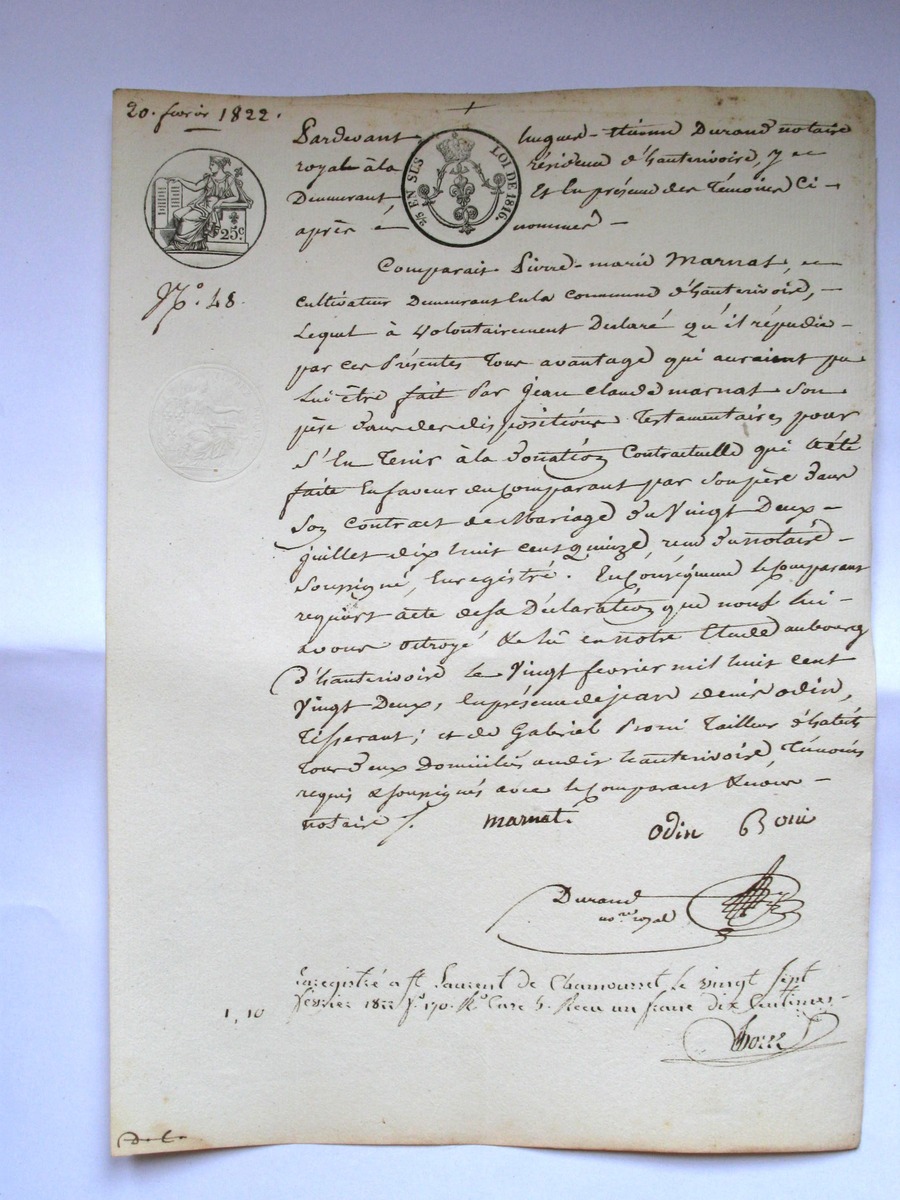 20. fevrier 1822.
Pardevant hugues-etienne Durand notaire
royal à la résidence d'hauterivoire, y
Demeurant, Et En présence des Témoins Ci-
après é nommés -
25 EN SUS LOI DE 1816.
25c
Comparait Pierre-marie Marnat,
N.o 48.
Cultivateur Demeurant En la Commune d'hauterivoire,
Lequel à volontairement Déclaré qu'il répudie
par Ces Présentes Tous avantage qui auraient pu
Lui être fait Par jean Claude marnat Son
père dans des dispositions Testamentaires pour
S'En Tenir à la Donation Contractuelle qui a été
faite En faveur du Comparant par Son père Dans
Son Contract de Mariage du Vingt Deux
juillet dix huit cent quinze, reçu du notaire
Soussigné, Enregistré. En Conséquence le Comparant
requiert acte de sa Déclaration que nous lui
avons octroyé de lû en notre Etude au bourg
d'hauterivoire le Vingt fevrier mil huit cent
Vingt Deux, En présence de jean denis odin,
Tisserant; et de Gabriel Tailleur d'habits
Tous Deux Domiciliés audit hauterivoire Témoins
requis & soussignés avec le Comparant & nous
notaire /.
marnat
odin
Durand
no.re royal
Enregistré a St. Laurent de Chamousset le vingt sept
fevrier 1822 f.o 170. R.o Case 5. Recu un franc dix Centimes.
1,10